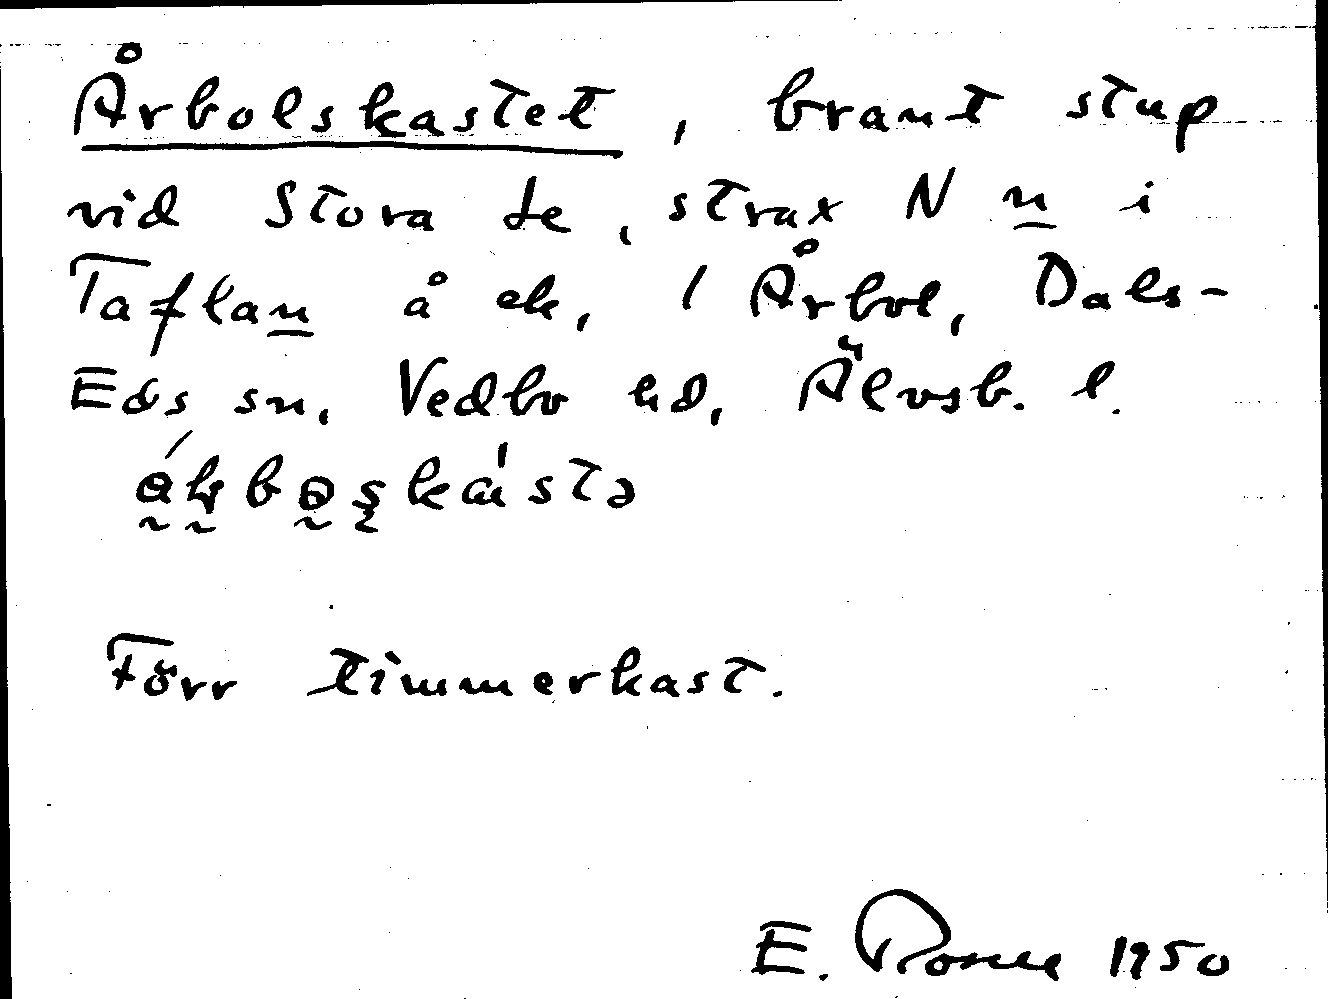 Årbolskastet, brant stup
vid Stora Le, strax N n i
Taflan å ek, 1 Årbol, Dals-
Eds sn, Vedbo hd, Älvsb. l.
Förr timmerkast.
E. 1950